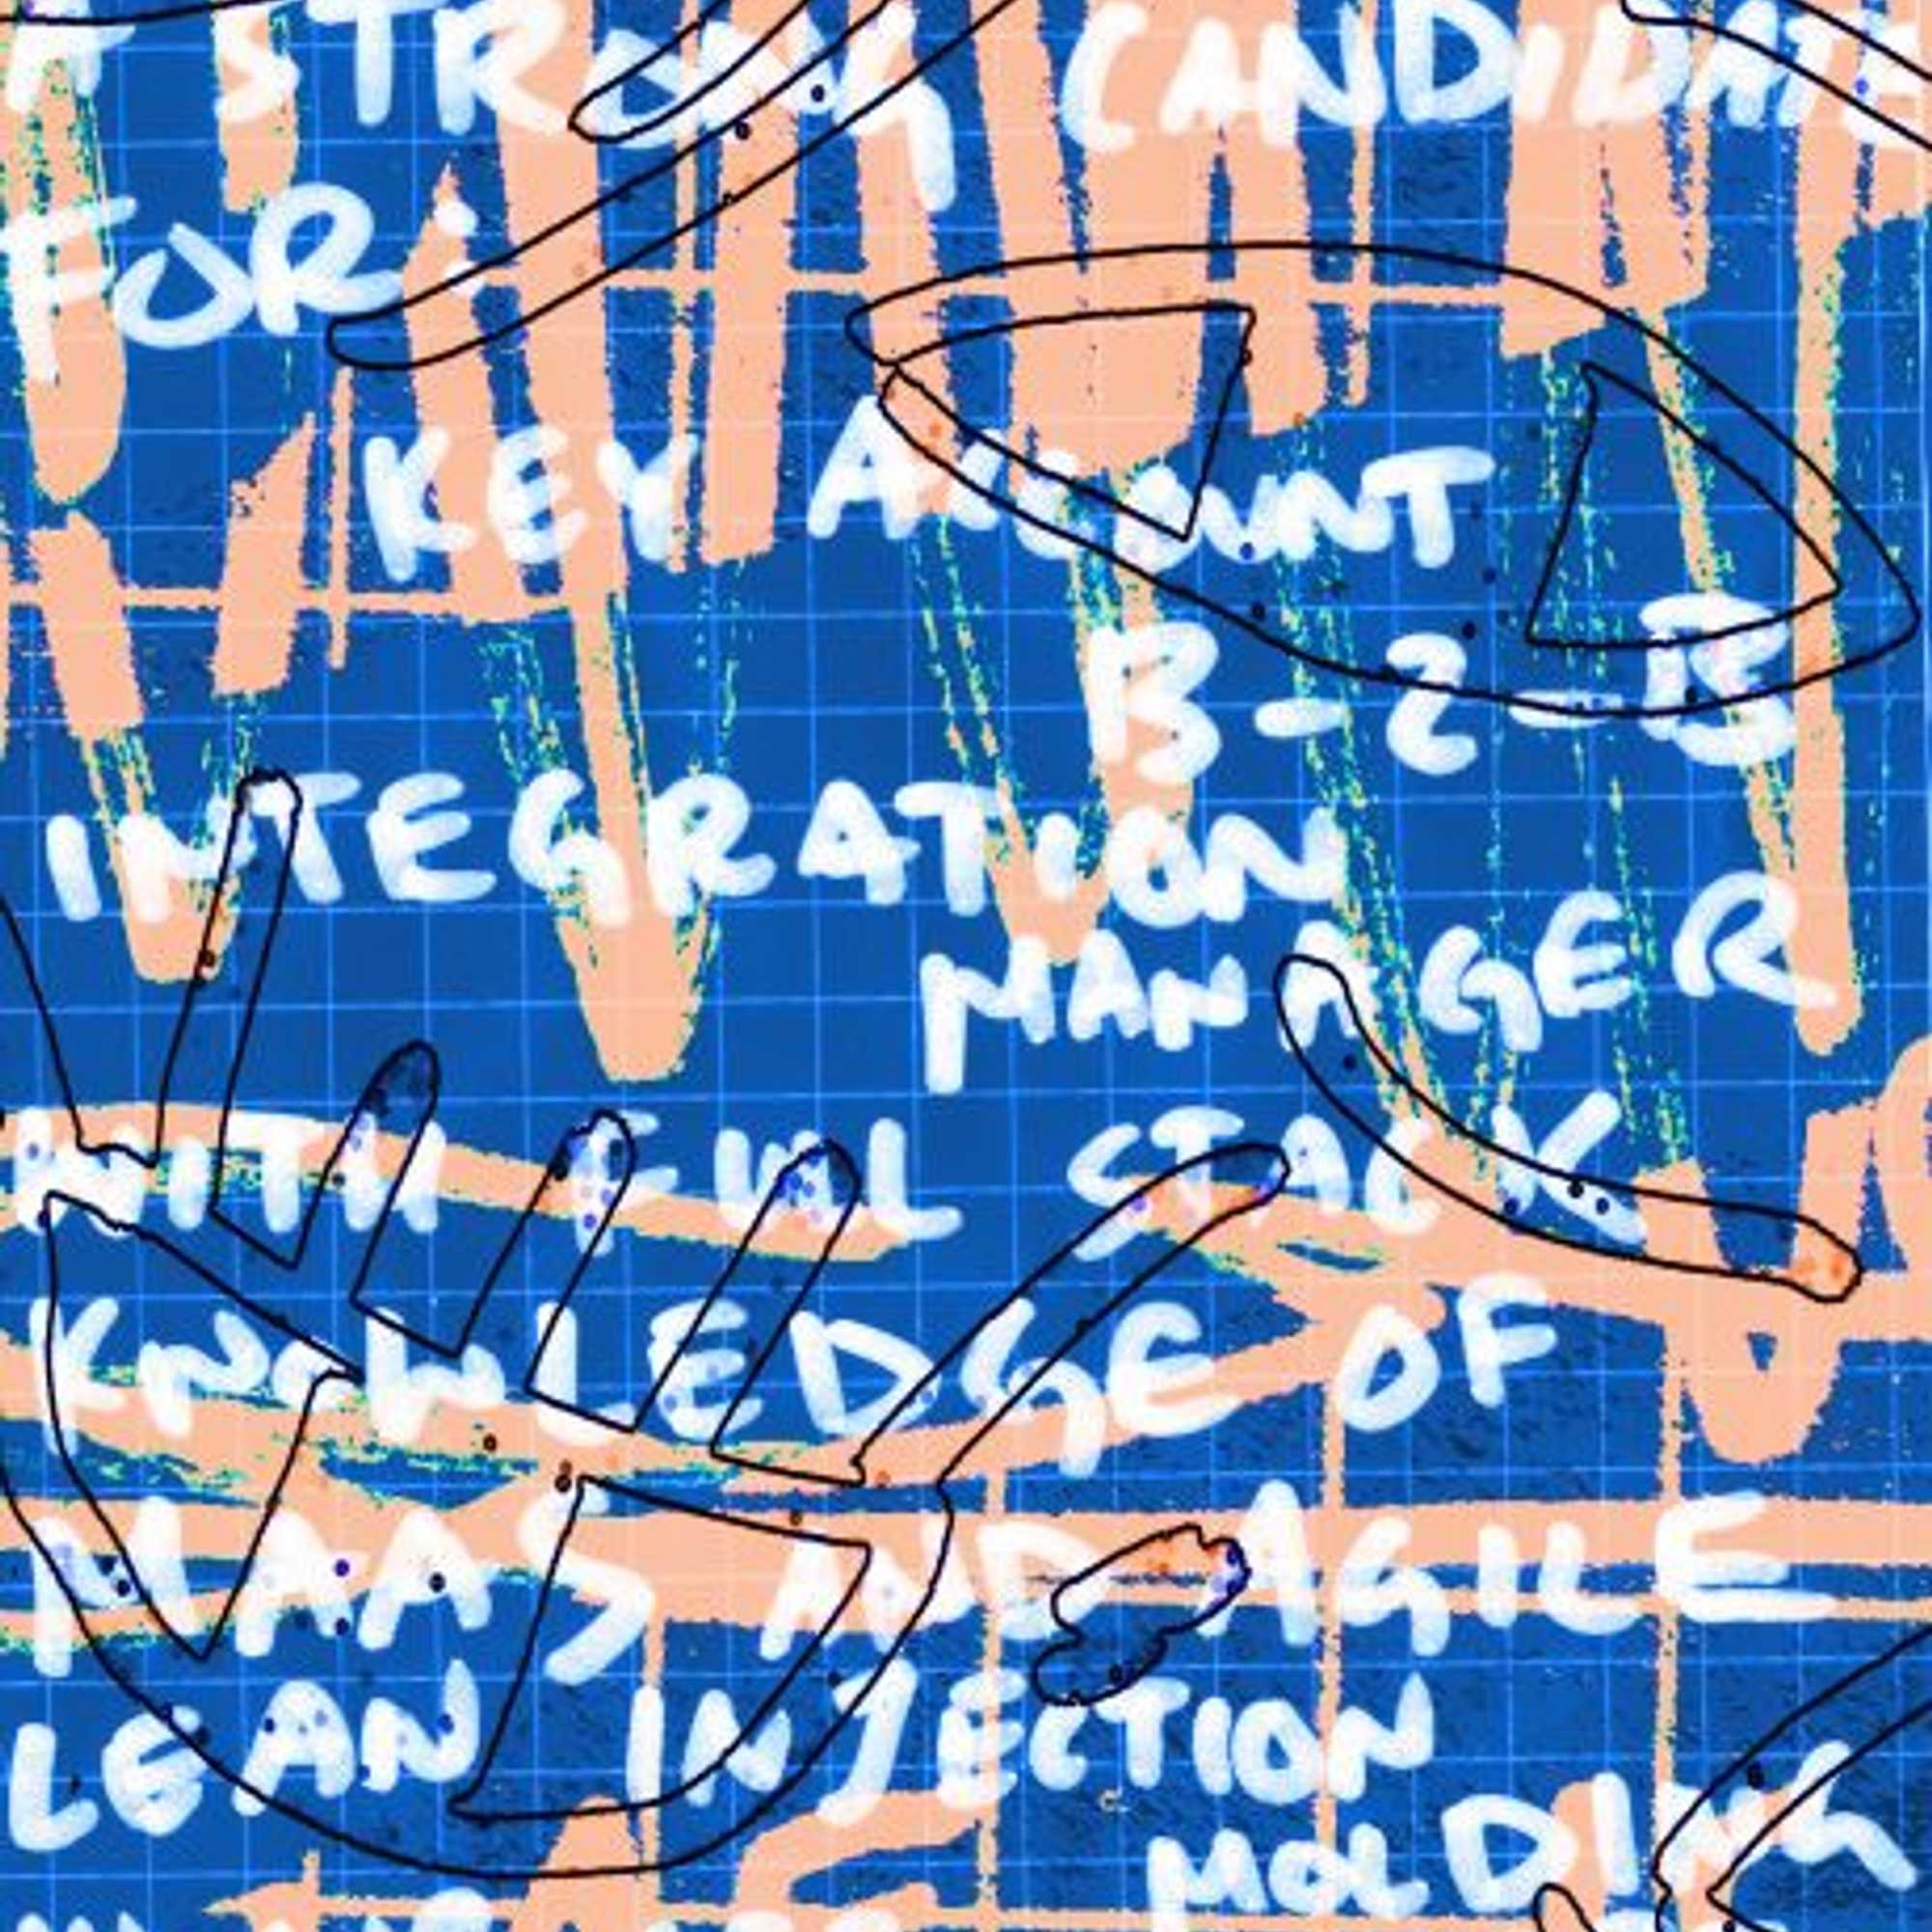 A STRONG CANDIDATE
FOR:
KEY ACCOUNT
B-2-B
INTEGRATION
MANAGER
WITH FULL STACK
KNOWLEDGE OF
MAAS AND AGILE
LEAN INJECTION
MOLDING